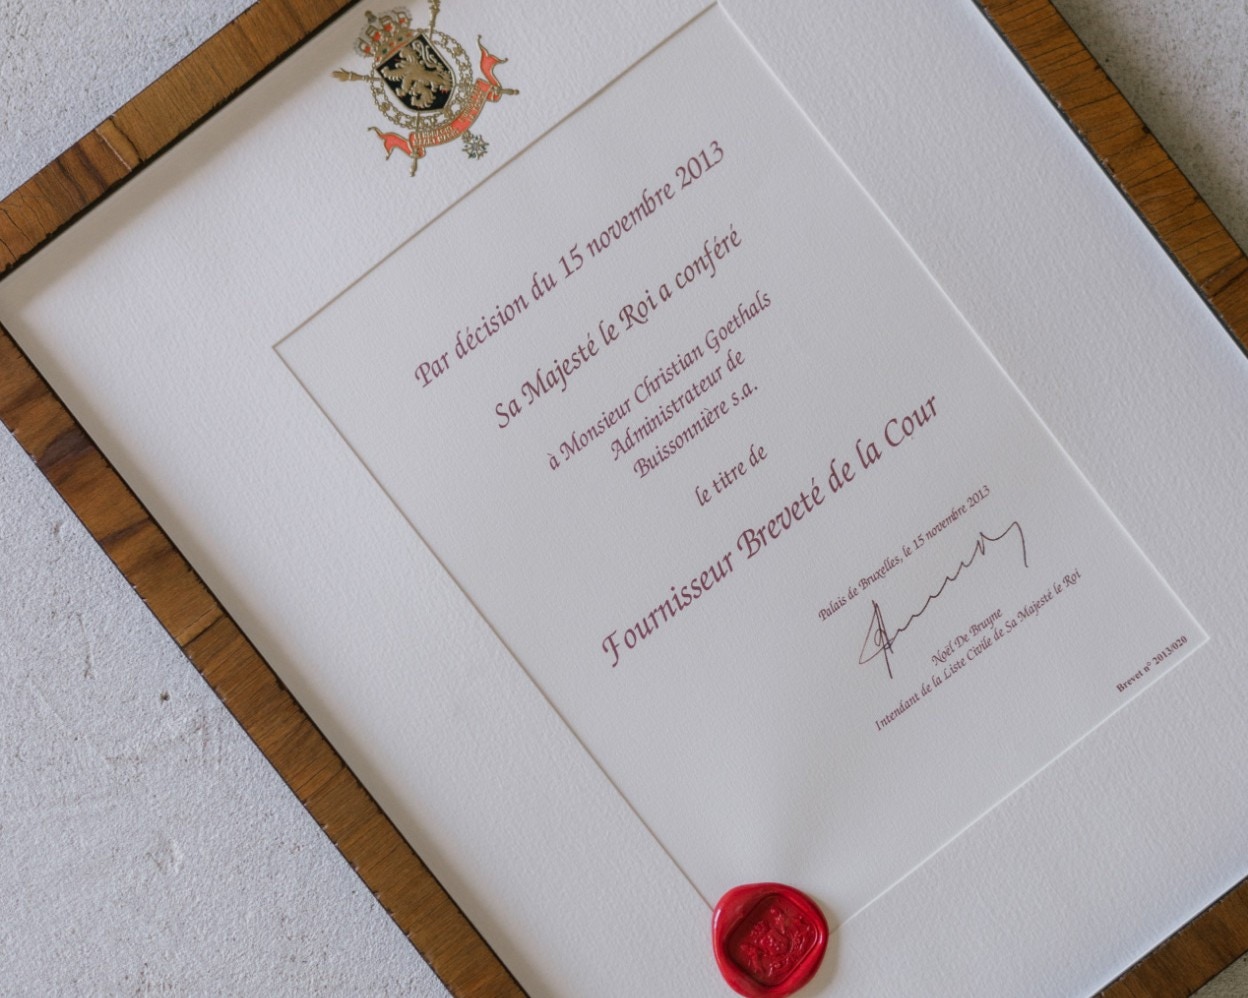 Par décision du 15 novembre 2013
Sa Majesté le Roi a conféré
à Monsieur Christian Goethals
Administrateur de
Buissonnière s.a.
le titre de
Fournisseur Breveté de la Cour
Palais de Bruxelles, le 15 novembre 2013
Noël De Bruyne
Intendant de la Liste Civile de Sa Majesté le Roi
Brevet n° 2013/020